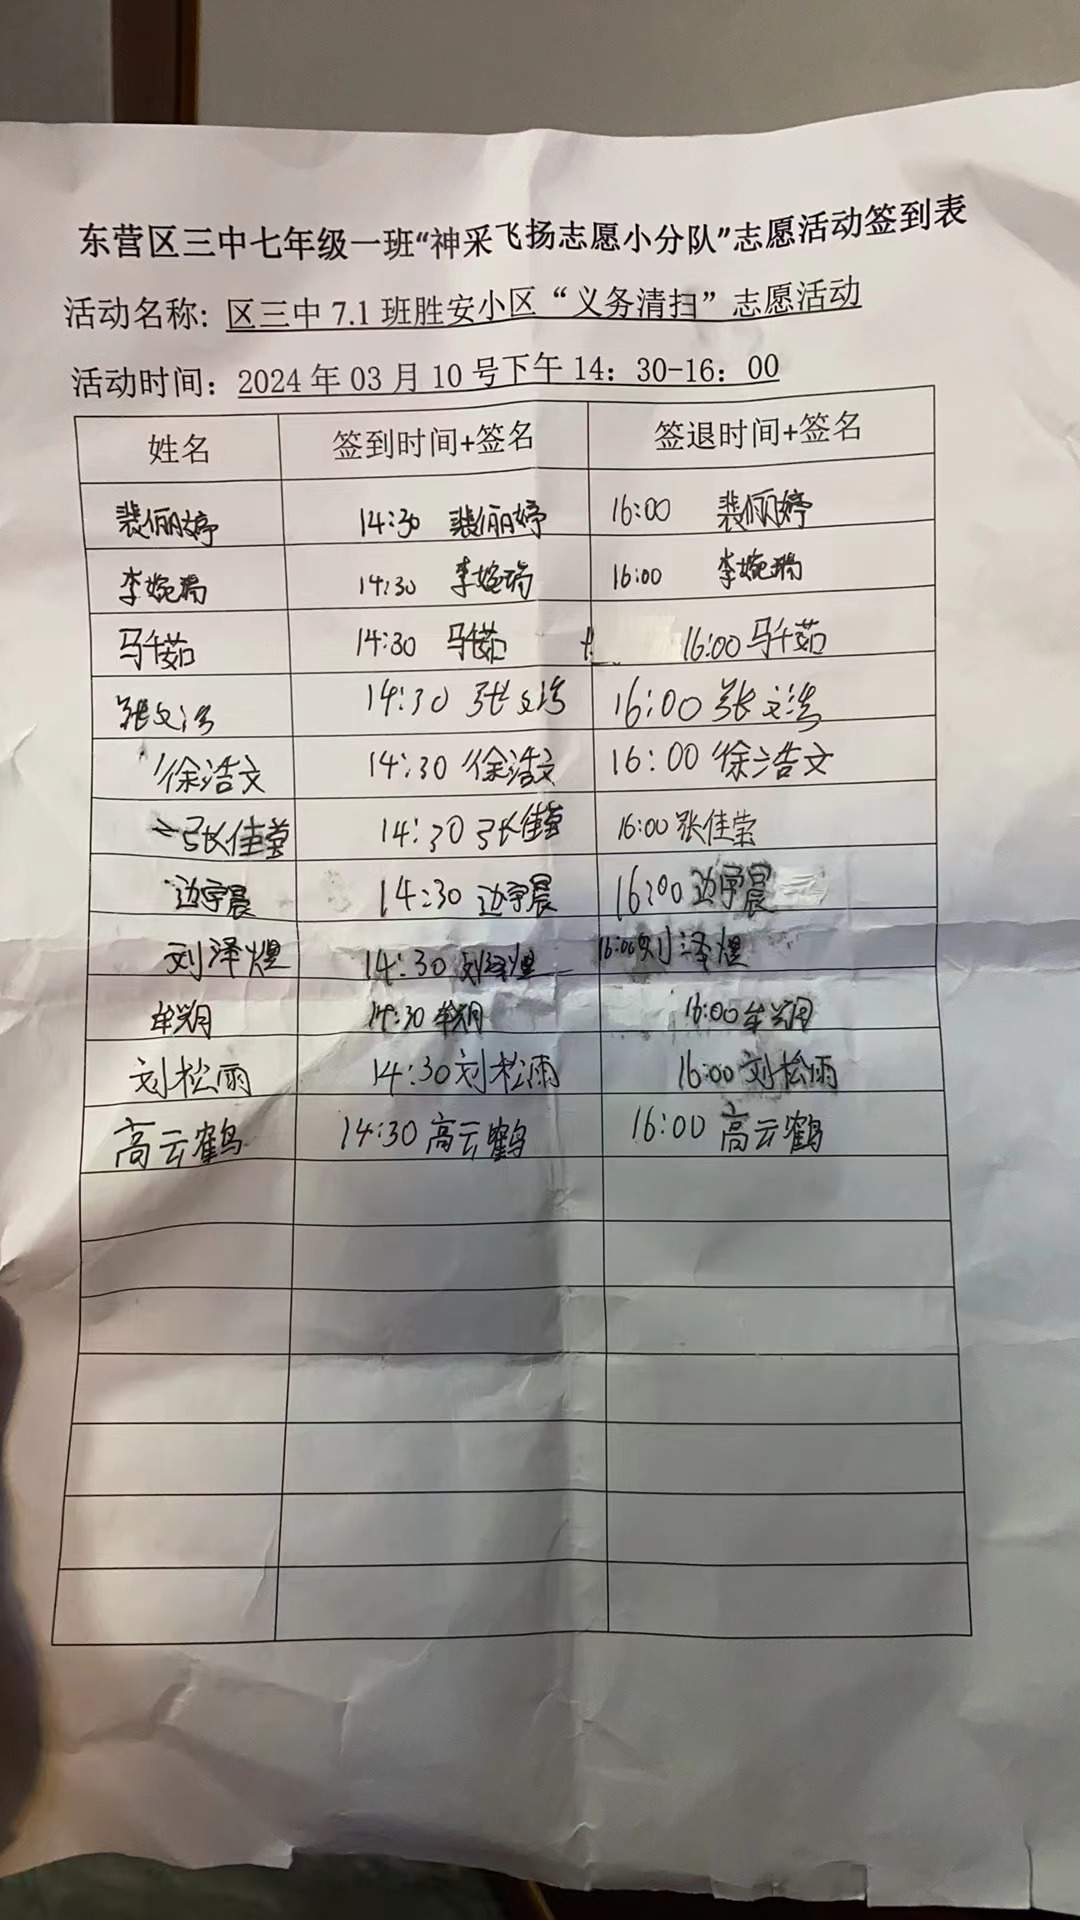 东营区三中七年级一班“神采飞扬志愿小分队”志愿活动签到表
活动名称: 区三中 7.1 班胜安小区“义务清扫”志愿活动
活动时间: 2024 年 03 月 10 号下午 14: 30-16: 00
姓名 签到时间+签名 签退时间+签名
裴俪婷 14:30 裴俪婷 16:00 裴俪婷
李婉瑞 14:30 李婉瑞 16:00 李婉瑞
马千茹 14:30 马千茹 16:00 马千茹
张文浩 14:30 张文浩 16:00 张文浩
徐浩文 14:30 徐浩文 16:00 徐浩文
张佳莹 14:30 张佳莹 16:00 张佳莹
边宇晨 14:30 边宇晨 16:00 边宇晨
刘泽煜 14:30 刘泽煜 16:00 刘泽煜
14:30 16:00
刘松雨 14:30 刘松雨 16:00 刘松雨
高云鹤 14:30 高云鹤 16:00 高云鹤